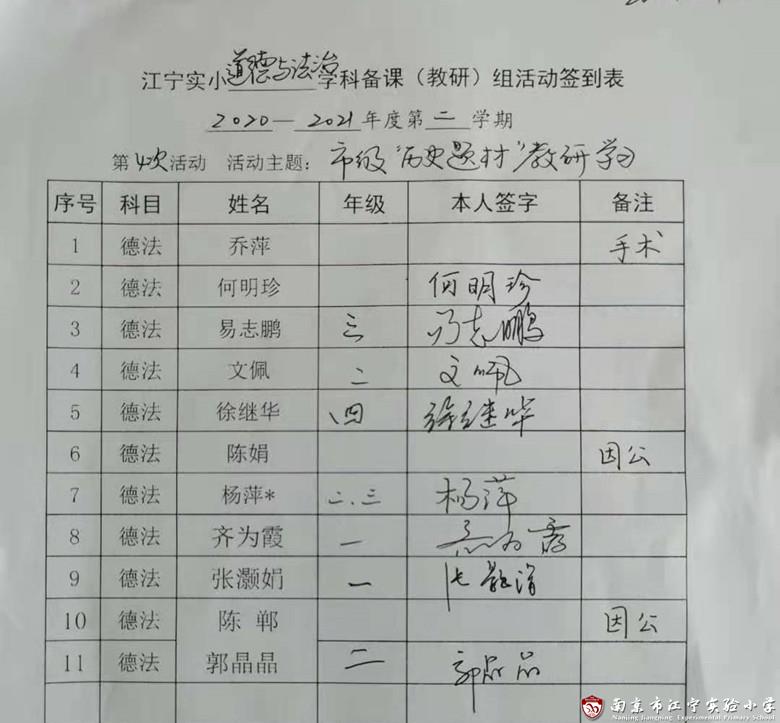 江宁实小道德与法治学科备课（教研）组活动签到表
2020—2021年度第二学期
第4次活动 活动主题：市级“历史题材”教研学习
序号 科目 姓名 年级 本人签字 备注
1 德法 乔萍 手术
2 德法 何明珍 何明珍
3 德法 易志鹏 三 易志鹏
4 德法 文佩 二 文佩
5 德法 徐继华 四 徐继华
6 德法 陈娟 因公
7 德法 杨萍* 二.三 杨萍
8 德法 齐为霞 一 齐为霞
9 德法 张灏娟 一 张灏娟
10 德法 陈 郸 因公
11 德法 郭晶晶 二 郭晶晶
南京市江宁实验小学
Nanjing Jiangning Experimental Primary School